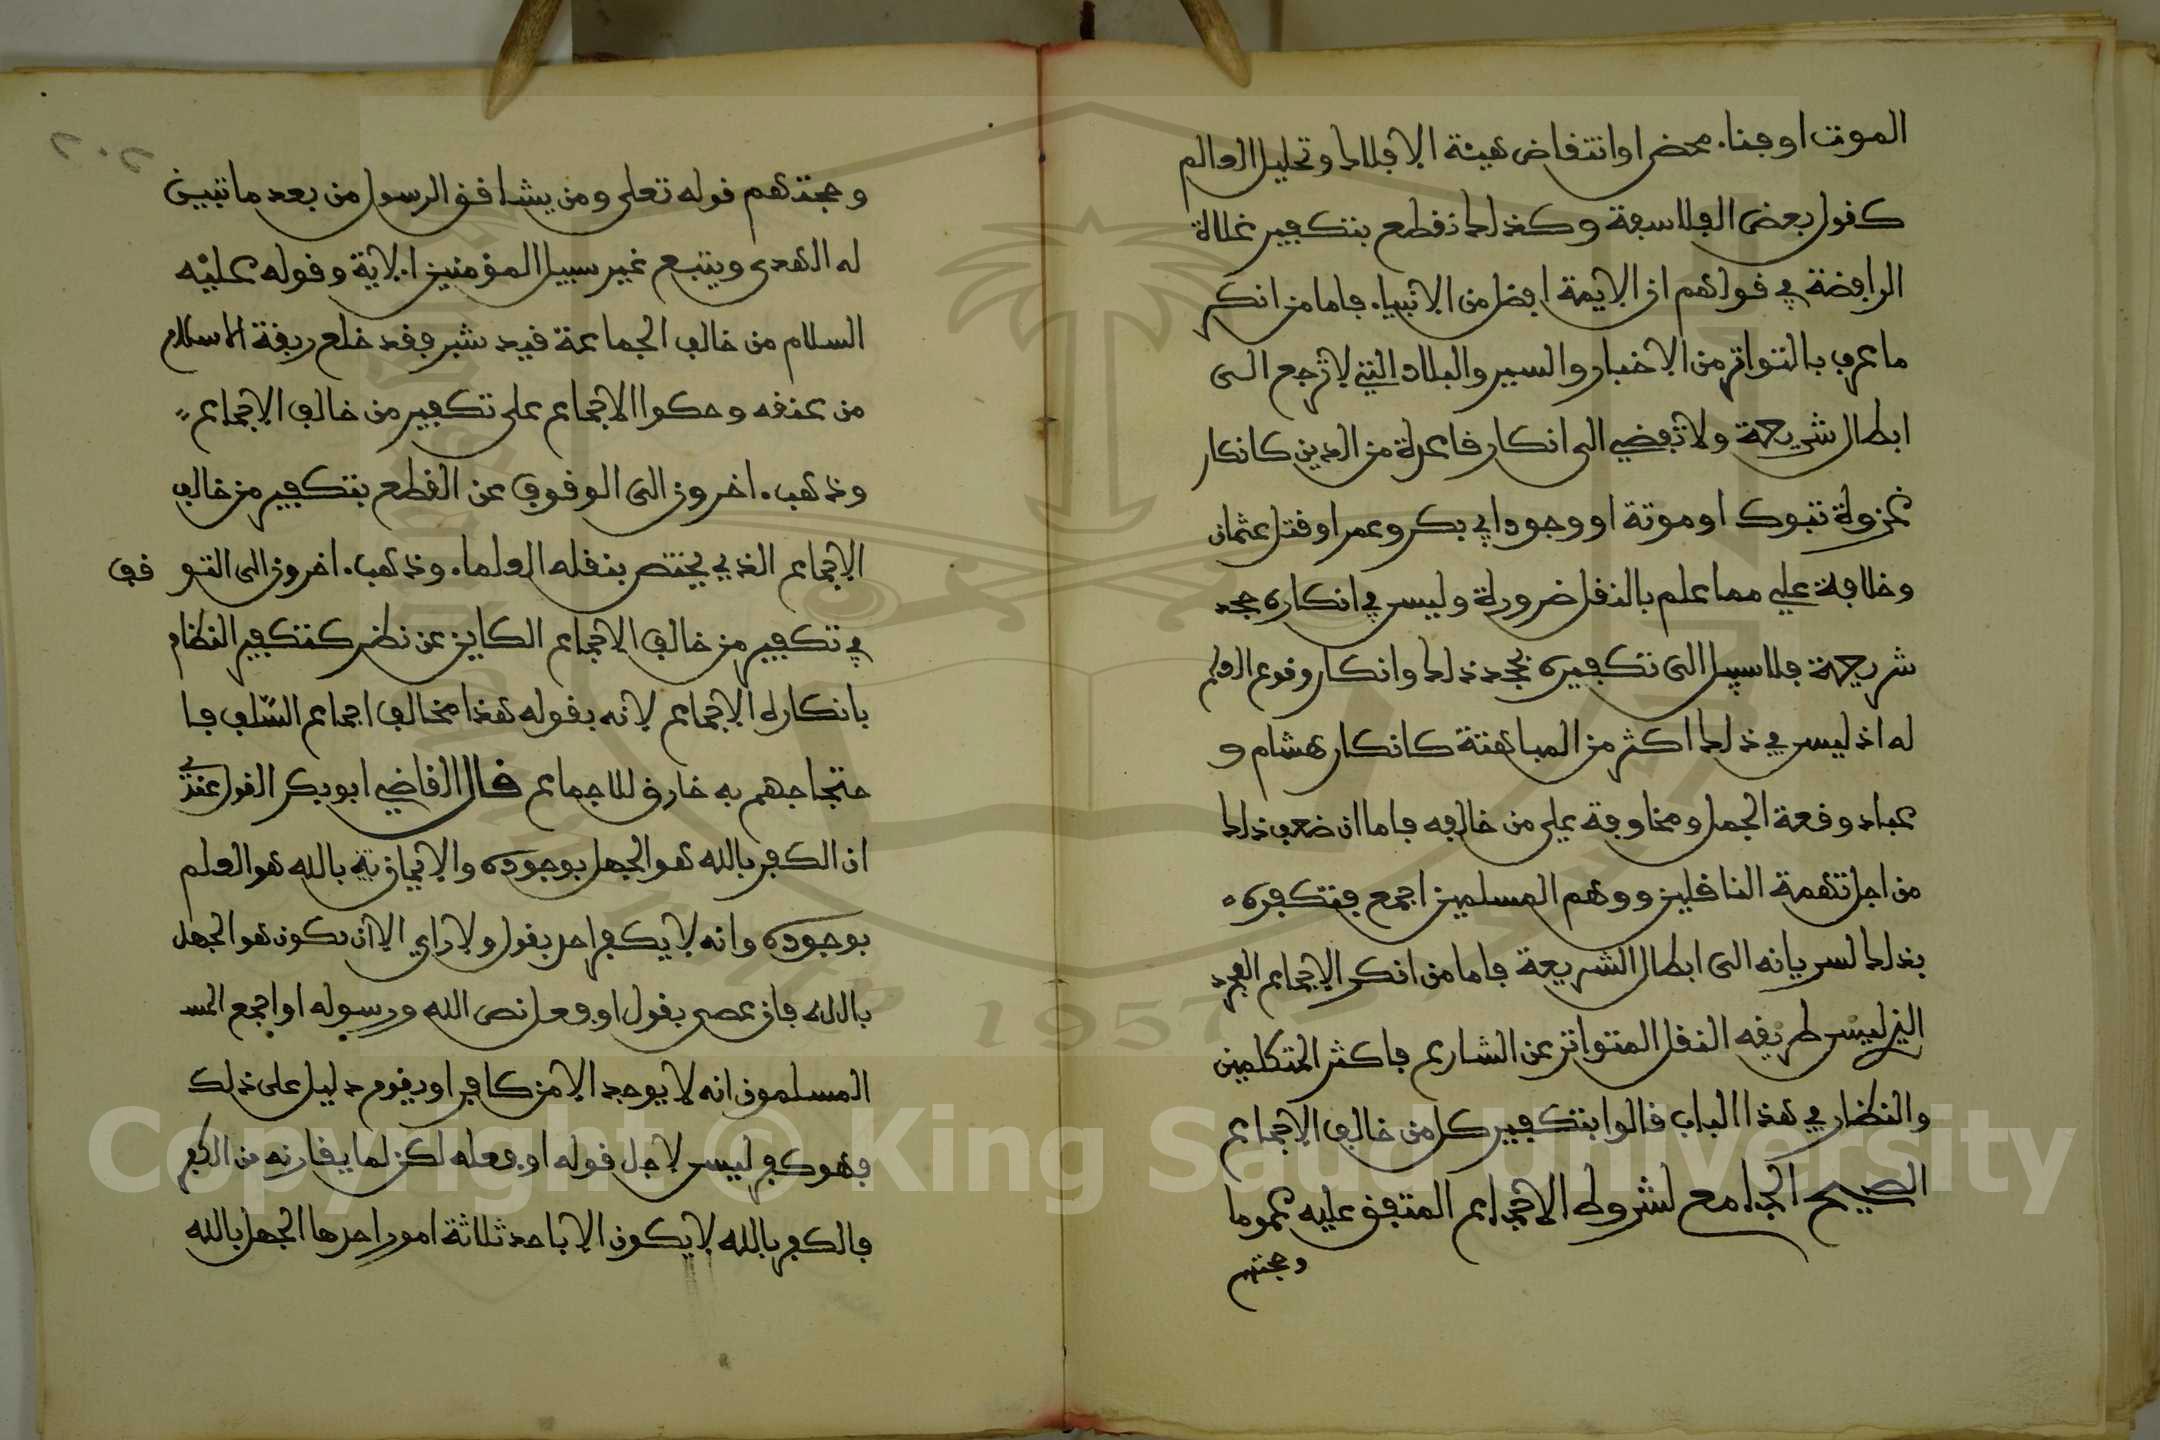 الموت او فنا. محض او انتفاض هيئة الافلاك وتحليل العالم
كفول بعض الفلاسفة وكذلك نفطع بتكفير غلاة
الرافضة في فولهم ان الايمة افضل من الانبيا. فاما من انكر
ما عرف بالتواتر من الاخبار والسير والبلاد التي لا ترجع الى
ابطال شريعة ولا تفضي الى انكار فاعدة من الدين كانكار
غزوة تبوك او موتة او وجود ابي بكر وعمر او فتل عثمان
وخلافة علي مما علم بالنفل ضرورة وليس في انكاره جحد
شريعة فلا سبيل الى تكفيره بجحد ذلك وانكار وفوع العلم
له اذ ليس في ذلك اكثر من المباهتة كانكار هشام و
عباد وفعة الجمل ومحاربة علي من خالفه فاما ان ضعف ذلك
من اجل تهمة النافلين ووهم المسلمين اجمع فنكفره
بذلك لسريانه الى ابطال الشريعة فاما من انكر الاجماع المجرد
الذي ليس طريفه النفل المتواتر عن الشارع فاكثر المتكلمين
والنظار في هذا الباب فالوا بتكفير كل من خالف الاجماع
الصحيح الجامع لشروط الاجماع المتفق عليه عموما
وحجتهم
٢٠٢
وحجتهم فوله تعلى ومن يشافق الرسول من بعد ما تبين
له الهدى ويتبع غير سبيل المؤمنين الاية وفوله عليه
السلام من خالف الجماعة فيد شبر ففد خلع ربفة الاسلام
من عنفه وحكوا الاجماع على تكفير من خالف الاجماع
وذهب. اخرون الى الوفوف عن الفطع بتكفير من خالف
الاجماع الذي يختص بنفله العلما. وذهب. اخرون الى التو فف
في تكفير من خالف الاجماع الكاين عن نظر كتكفير النظام
بانكاره الاجماع لانه بفوله هذا مخالف اجماع السلف فا
حتجاجهم به خارف للاجماع فال الفاضي ابو بكر الفول عندي
ان الكفر بالله هو الجهل بوجوده والايمان به بالله هو العلم
بوجوده وانه لا يكفر احد بفول ولا راي الا ان يكون هو الجهل
بالله فان عصى بفول او فعل نص الله ورسوله او اجمع المسـ
المسلمون انه لا يوجد الا من كافر او يفوم دليل على ذلك
فهو كفر ليس لاجل فوله او فعله لكن لما يفارنه من الكفر
فالكفر بالله لا يكون الا باحد ثلاثة امور احدها الجهل بالله
Copyright © King Saud University
1957